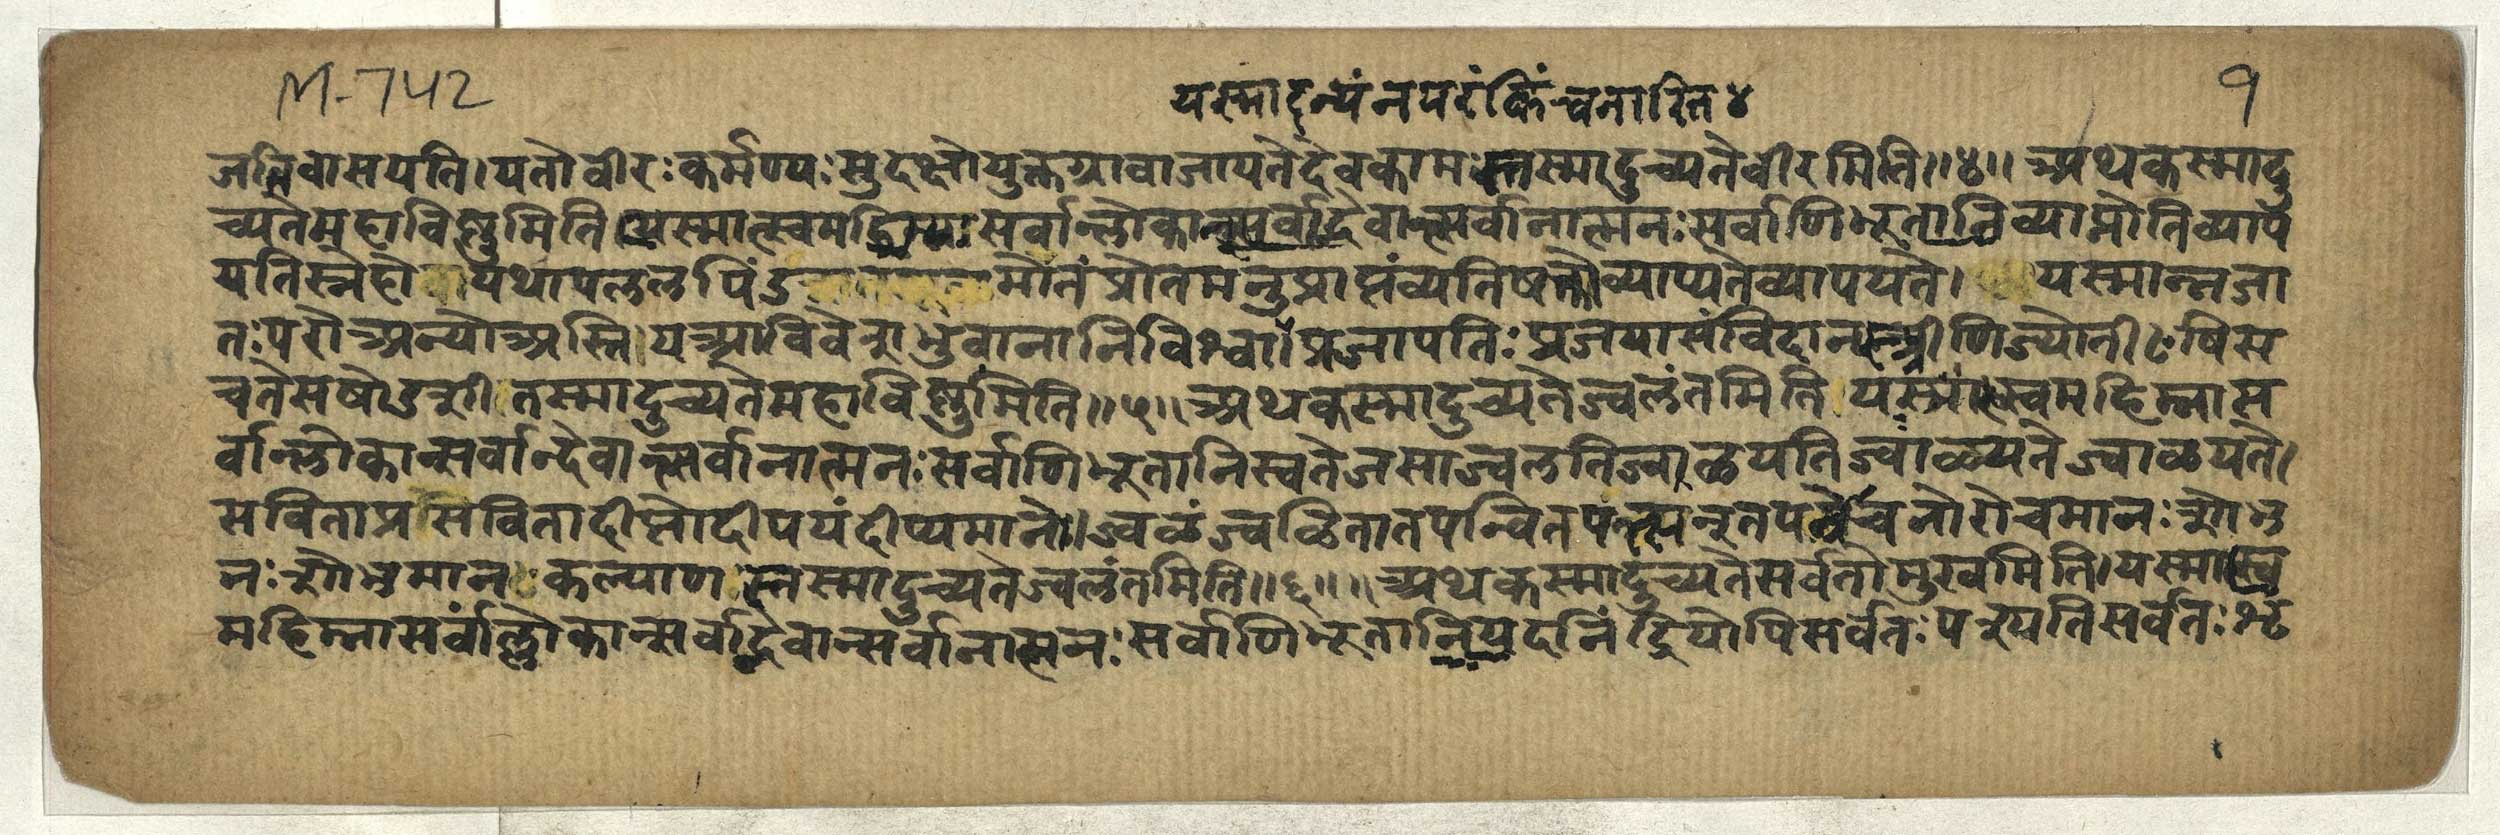 M-742
यस्मादन्यंनपरंकिंचनास्ति४
१
जतिवासयति।यतोवीरःकर्मण्यःसुदक्षोयुक्तग्रावाजायतेदेवकामस्तस्मादुच्यतेवीरमिति॥४॥अथकस्मादु
च्यतेमहाविष्णुमिति यस्मात्स्वमहिम्ना सर्वान्लोकान्सर्वान्देवान्सर्वानात्मनःसर्वाणिभूतानिव्याप्नोतिव्याप
यतिस्नेहो यथापललपिंड मोतंप्रोतमनुप्राप्तंव्यतिषक्तोव्याप्यतेव्यापयते। यस्मान्नजा
तःपरोअन्योअस्ति।यआविवेशभुवानानिविश्वा।प्रजापतिःप्रजयासंविदानस्त्रीणिज्योतीꣳषिस
चतेसषोडशी।तस्मादुच्यतेमहाविष्णुमिति॥५॥अथकस्मादुच्यतेज्वलंतमिति।यस्मात्स्वमहिम्नास
र्वान्लोकान्सर्वान्देवान्सर्वानात्मनःसर्वाणिभूतानिस्वतेजसाज्वलतिज्वाळयतिज्वाळ्यतेज्वाळयते।
सविताप्रसवितादीप्तोदीपयंदीप्यमानो।ज्वळंज्वळितातपन्वितपंत्सं रोचनोरोचमानःशोभ
नःशोभमानःकल्याणस्तस्मादुच्यतेज्वलंतमिति॥६॥॥अथकस्मादुच्यतेसर्वतोमुखमिति।यस्मात्स्व
महिम्नासर्वांल्लोकान्सर्वान्देवान्सर्वानात्मनःसर्वाणिभूतानि निंद्रियोपिसर्वतःपश्यतिसर्वतःशृ